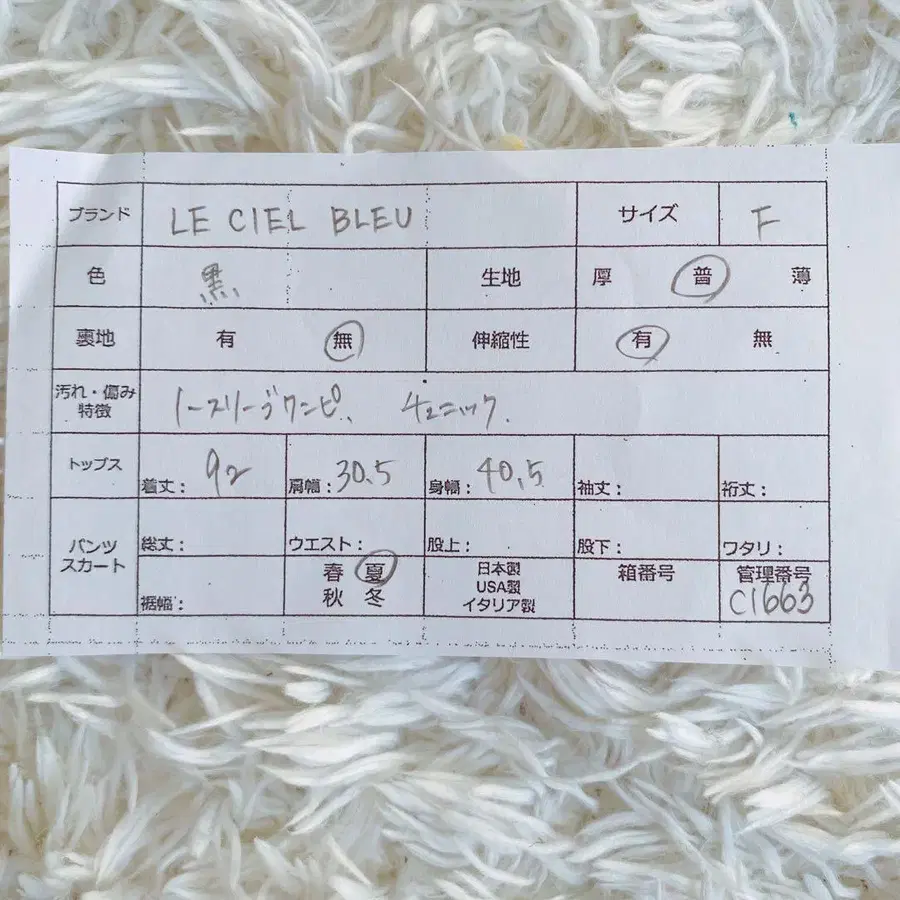 ブランド LE CIEL BLEU サイズ F
色 黒 生地 厚 普 薄
裏地 有 無 伸縮性 有 無
汚れ・傷み
特徴 ノースリーブワンピ、 チュニック.
トップス 着丈: 92 肩幅: 30.5 身幅: 40.5 袖丈: 裄丈:
パンツ
スカート 総丈: ウエスト: 股上: 股下: ワタリ:
裾幅: 春 夏
秋 冬
日本製
USA製
イタリア製
箱番号
管理番号
C1663